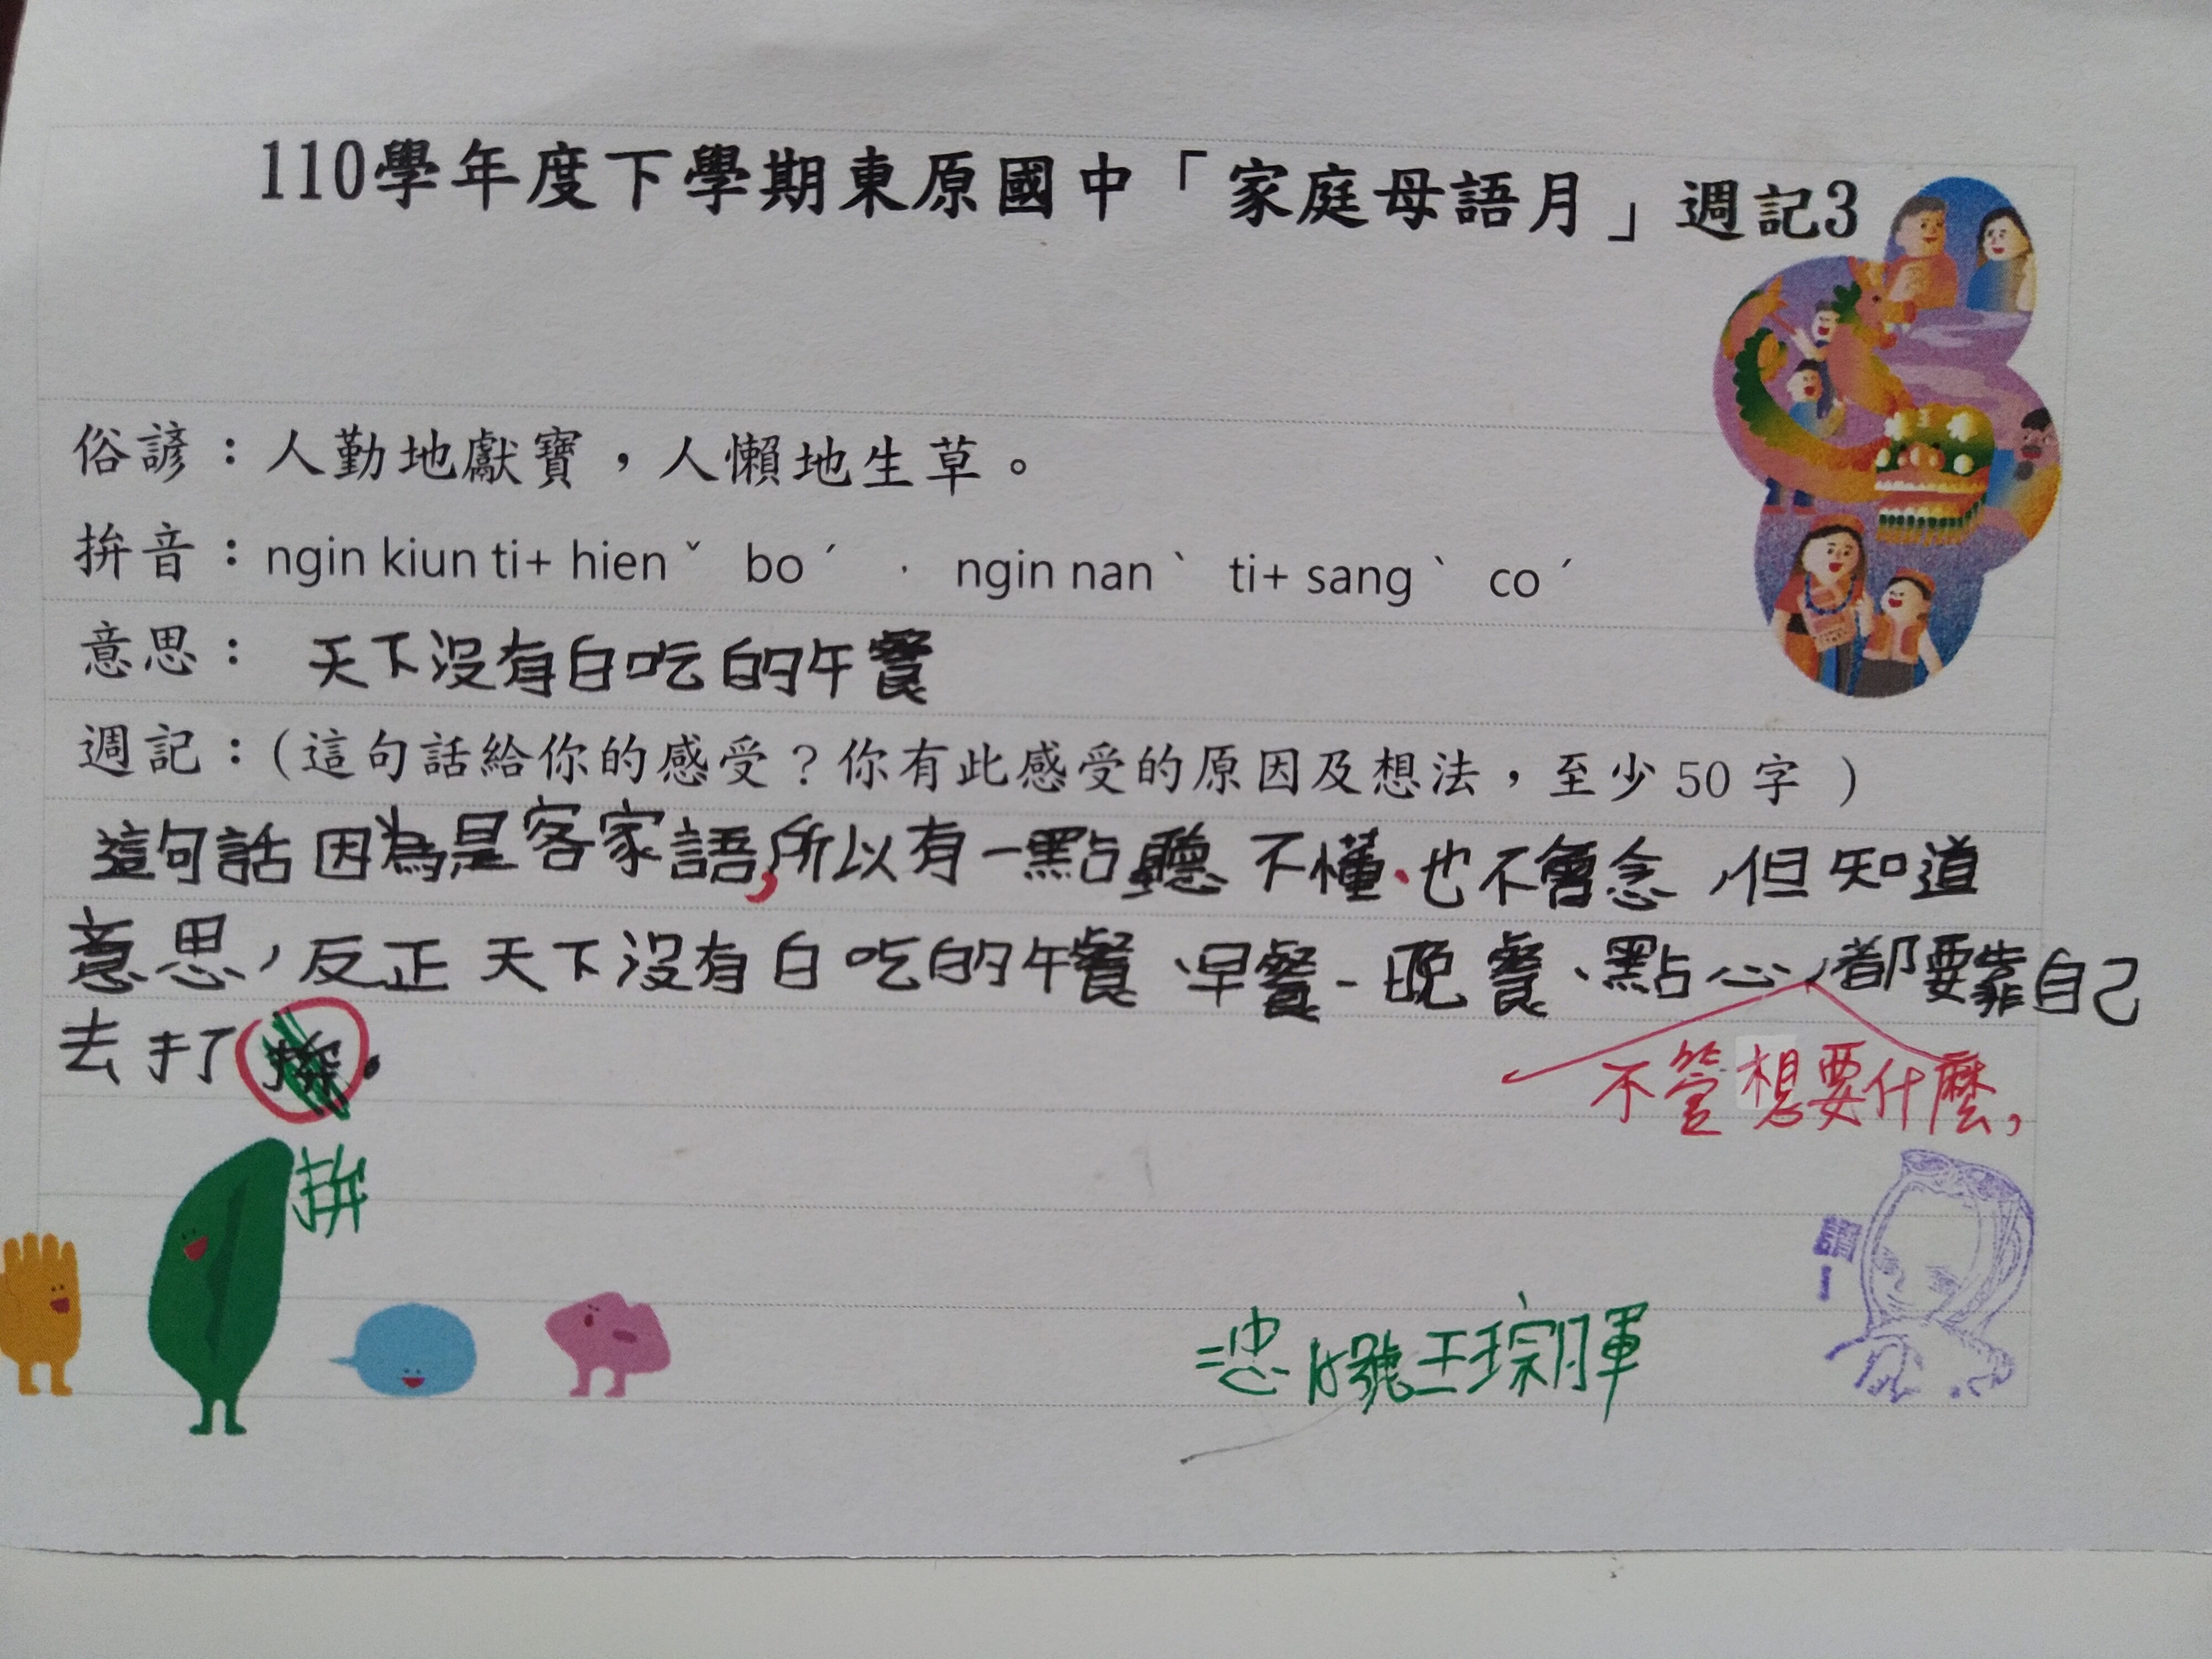 110學年度下學期東原國中「家庭母語月」週記3
俗諺：人勤地獻寶，人懶地生草。
拚音：ngin kiun ti+ hienˇ boˊ ， ngin nanˋ ti+ sangˋ coˊ
意思： 天下沒有白吃的午餐
週記：(這句話給你的感受？你有此感受的原因及想法，至少50字 )
這句話因為是客家語，所以有一點聽不懂、也不會念，但知道
意思，反正天下沒有白吃的午餐、早餐、晚餐、點心，都要靠自己
去打
不管想要什麼，
拚
二忠 號王琮